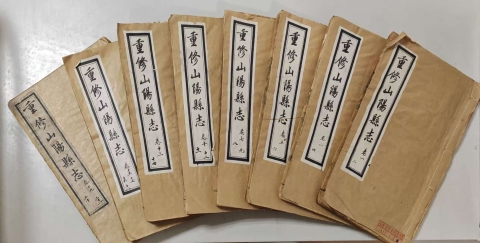 重修山陽縣志
重修山陽縣志
重修山陽縣志
重修山陽縣志 卷十
重修山陽縣志 卷七 八
重修山陽縣志
重修山陽縣志
重修山陽縣志 卷一